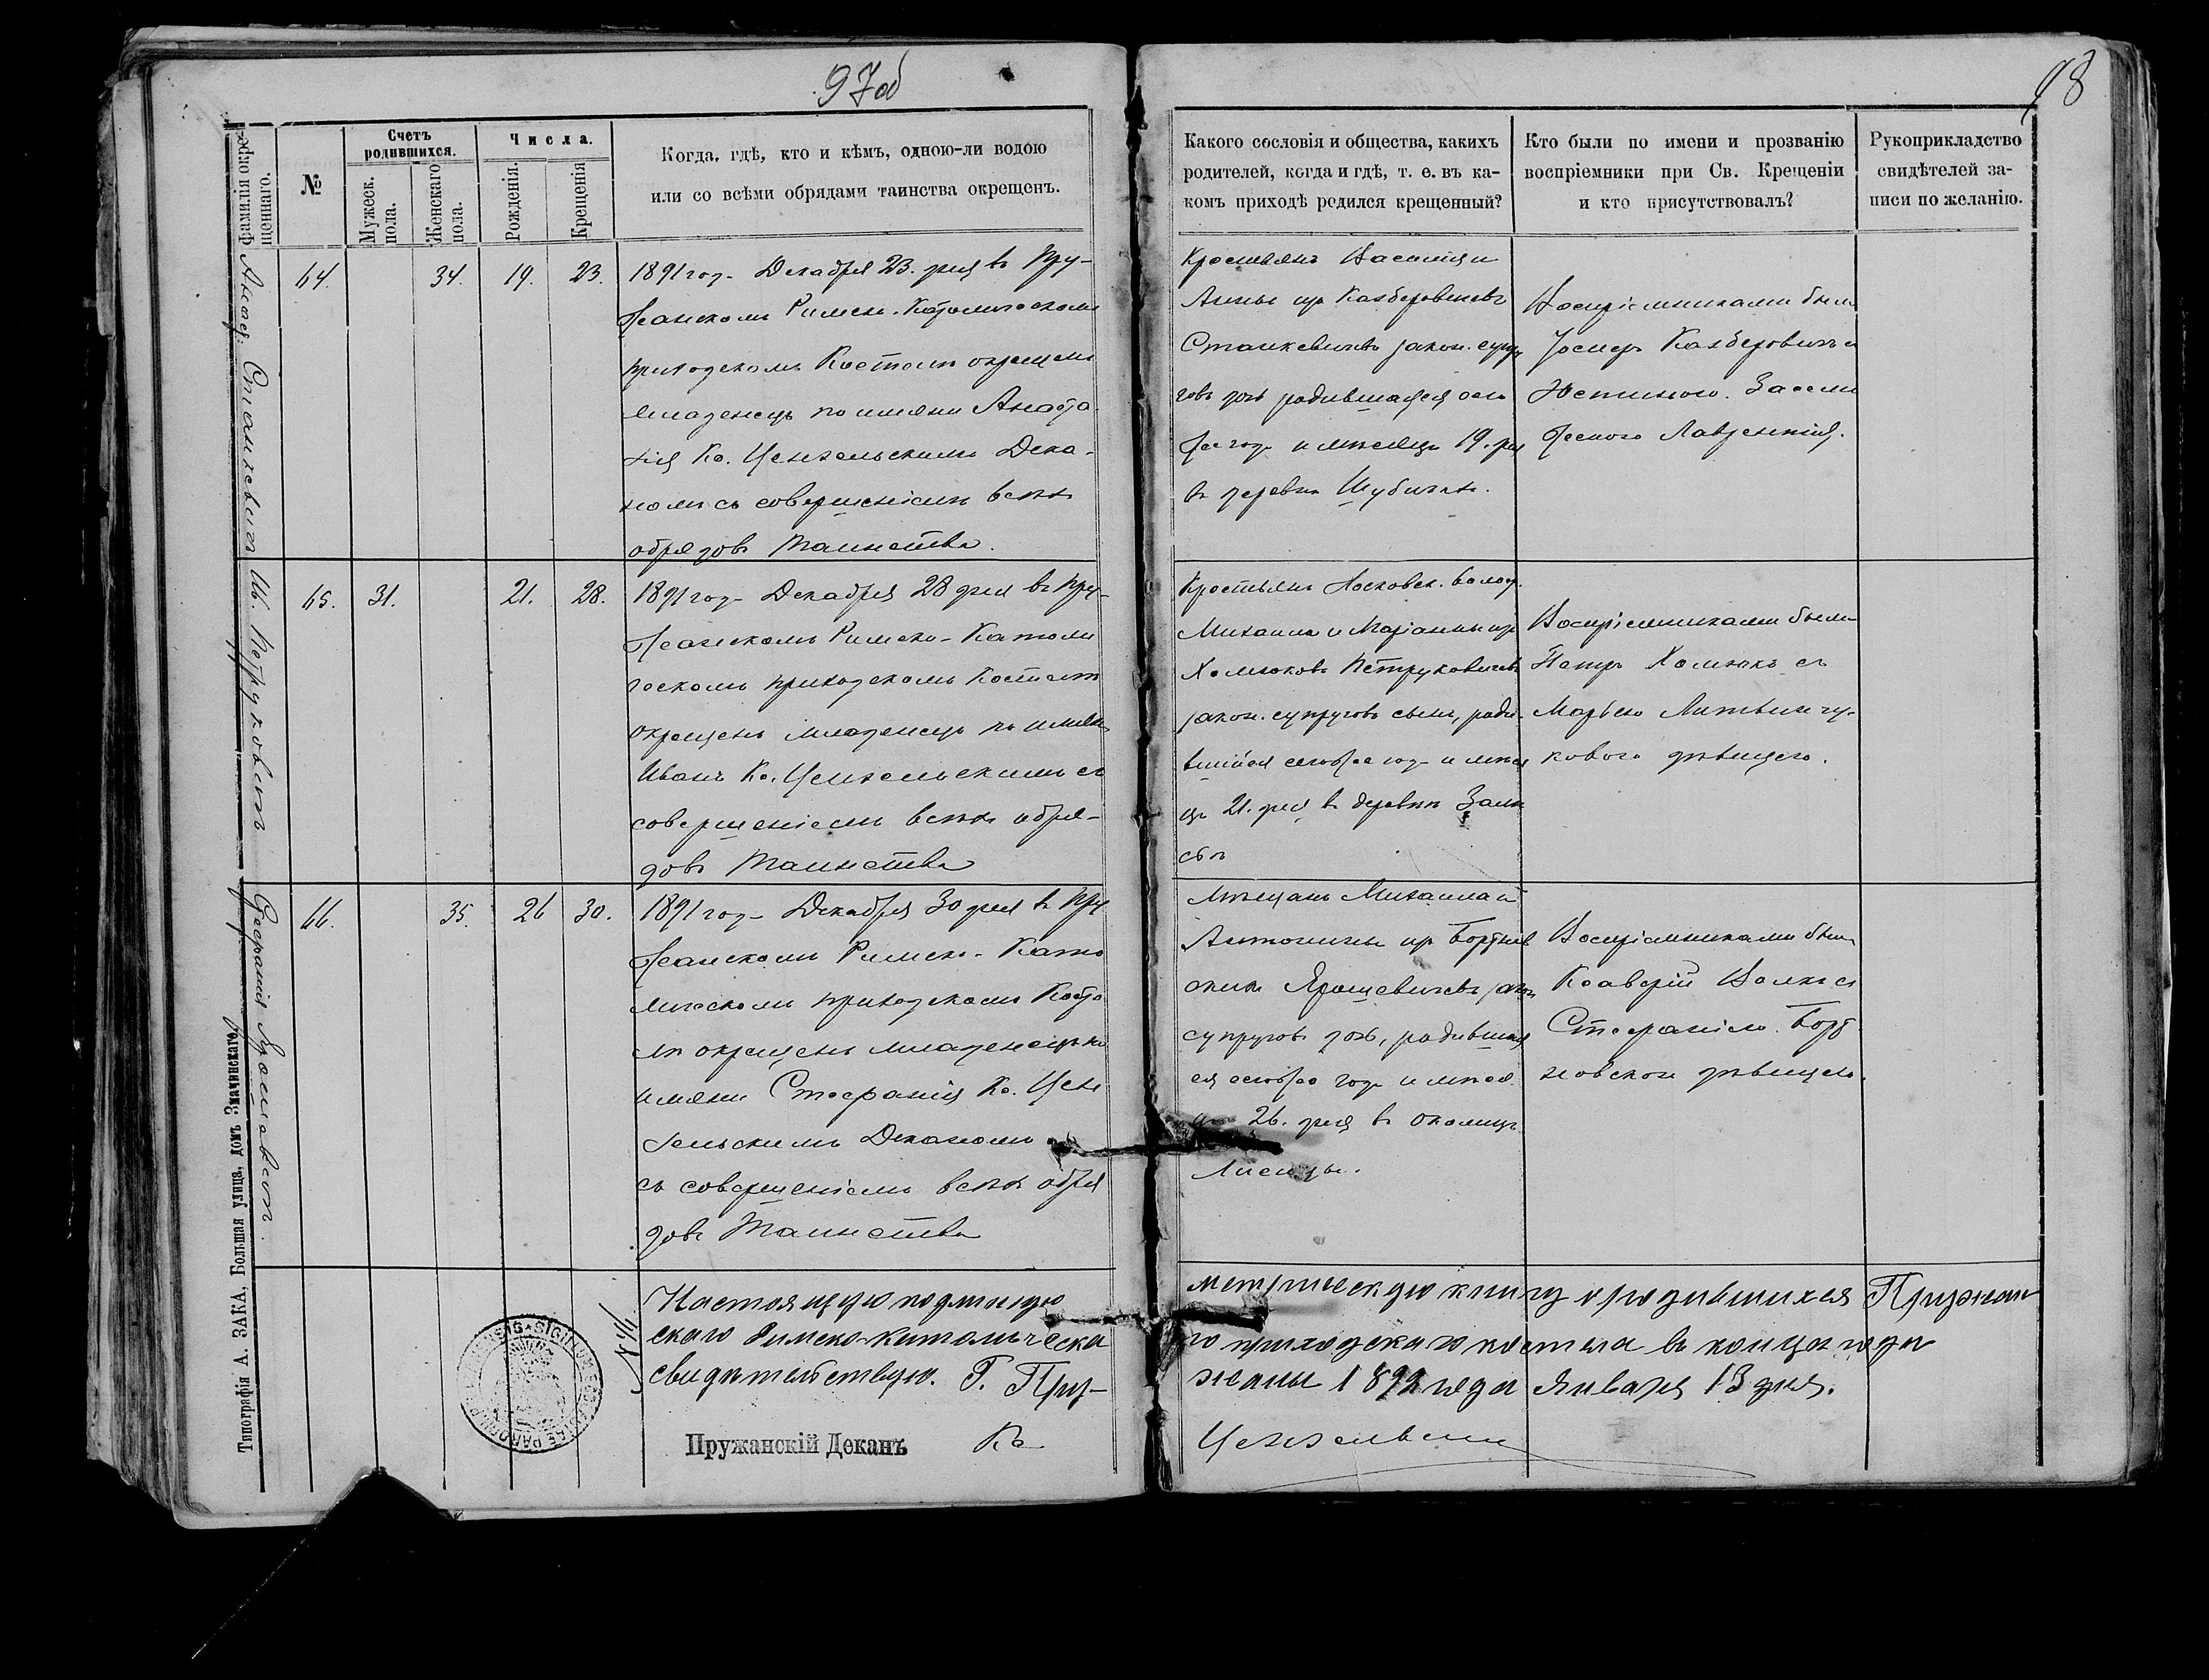 97об
98
Фамилія окре-
щеннаго.
№
Счетъ
родившихся.
Мужеск.
пола.
Женскаго
пола.
Числа.
Рожденія.
Крещенія
Когда, гдѣ, кто и кѣмъ, одною-ли водою
или со всѣми обрядами таинства окрещенъ.
Какого сословія и общества, какихъ
родителей, когда и гдѣ, т. е. въ ка-
комъ приходѣ родился крещенный?
Кто были по имени и прозванію
воспріемники при Св. Крещеніи
и кто присутствовалъ?
Рукоприкладство
свидѣтелей за-
писи по желанію.
Станкевичъ
64.
34.
19.
23.
1891 год- Декабря 23. дня въ Пру-
жанскомъ Римско-Католическомъ
приходскомъ Костелѣ окрещенъ
младенецъ по имени Анаста-
сія Кс. Ценкельскимъ Дека-
номъ съ совершеніемъ всѣхъ
обрядовъ Таинства.
Крестьянъ
Анны изъ
Станкевичевъ закон. супру
говъ дочь родившаяся сего
же год и мѣсяца 19. дня
въ деревнѣ Шубичахъ.
Воспріемниками были
съ
Лаврентія.
Ив. Петруковичъ
65.
31.
21.
28.
1891 год- Декабря 28 дня въ Пру-
жанскомъ Римско-Католи
ческомъ приходскомъ Костелѣ
окрещенъ младенецъ по имени
Иванъ Кс. Ценкельскимъ съ
совершеніемъ всѣхъ обря-
довъ Таинства
Крестьянъ Носковск. волост.
Михаила и Маріанны изъ
Хомяковъ Петруковичевъ
закон. супруговъ сынъ, роди-
вшійся сего же год и мѣся
ца 21. дня въ деревнѣ
Воспріемниками были
Петръ Хомякъ съ
Марьею Литвинчу-
ковою дѣвицею.
Стефанія Ярошевичъ
66.
35.
26
30.
1891 год- Декабря 30 дня въ Пру
жанскомъ Римско-Като
лическомъ приходскомъ Косте
лѣ окрещенъ младенецъ по
имени Стефанія Кс. Цен
кельскимъ Деканомъ
съ совершеніемъ всѣхъ обря
довъ Таинства
Мѣщанъ Михаила и
Антонины изъ
Ярошевичевъ закон
супруговъ дочь, родившая
ся сего же года и мѣся
ца 26. дня въ околицѣ
Воспріемниками были
Ксаверій Волкъ съ
Стефаніею Борт
новскою дѣвицею.
Настоящую подлинную метрическую книгу о родившихся Пружан
скаго Римско-Католическа го приходскаго костела въ концѣ года
свидѣтельствую. Г. Пру- жаны 1892 года Января 13 дня.
Пружанскій Деканъ Кс Ценкельскій
Типографія А. ЗАКА, Большая улица, домъ Значинскаго.